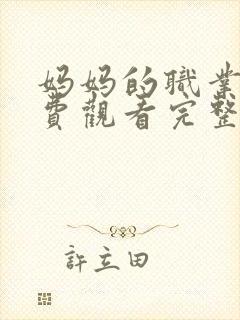 妈妈的職業
費觀看完整
許立田